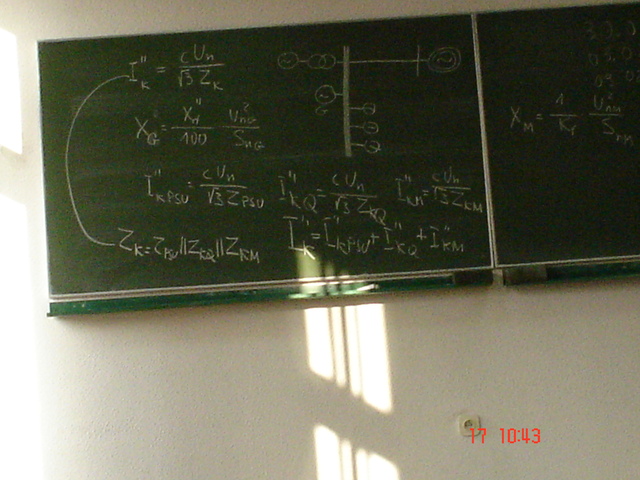 I"k = c Un / √3 Zk
XG = X"d / 100 U²nG / SnG
I"kPSU = c Un / √3 ZPSU I"kQ = c Un / √3 ZkQ I"kM = c Un / √3 ZkM
Zk = ZPSU || ZkQ || ZkM I"k = I"kPSU + I"kQ + I"kM
G
XM = 1 / Kr U²nM / SnM
17 10:43